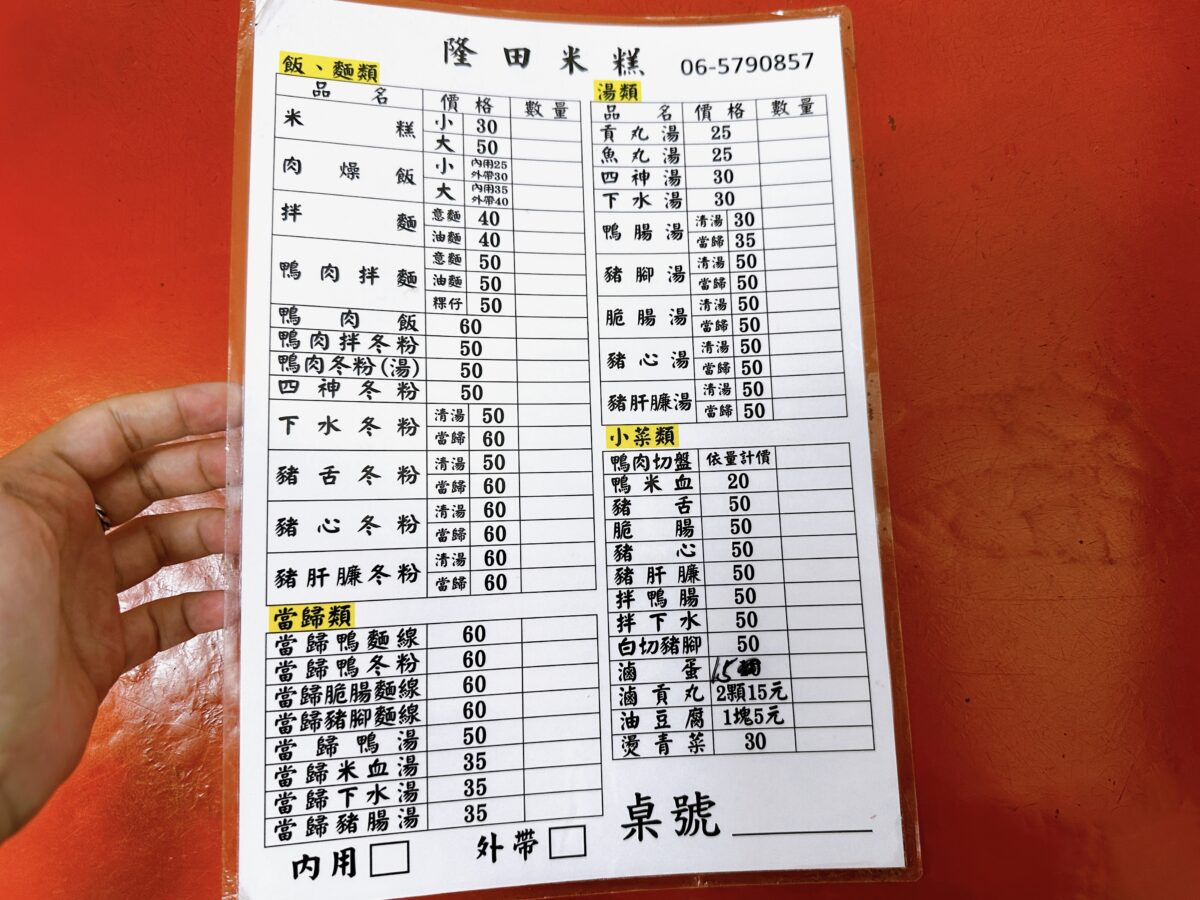 隆田米糕 06-5790857
飯、麵類
品名 價格 數量
米糕 小 30
大 50
肉燥飯 小 內用25 外帶30
大 內用35 外帶40
拌麵 意麵 40
油麵 40
鴨肉拌麵 意麵 50
油麵 50
粿仔 50
鴨肉飯 60
鴨肉拌冬粉 50
鴨肉冬粉(湯) 50
四神冬粉 50
下水冬粉 清湯 50
當歸 60
豬舌冬粉 清湯 50
當歸 60
豬心冬粉 清湯 60
當歸 60
豬肝臁冬粉 清湯 60
當歸 60
當歸類
當歸鴨麵線 60
當歸鴨冬粉 60
當歸脆腸麵線 60
當歸豬腳麵線 60
當歸鴨湯 50
當歸米血湯 35
當歸下水湯 35
當歸豬腸湯 35
內用 外帶
湯類
品名 價格 數量
貢丸湯 25
魚丸湯 25
四神湯 30
下水湯 30
鴨腸湯 清湯 30
當歸 35
豬腳湯 清湯 50
當歸 50
脆腸湯 清湯 50
當歸 50
豬心湯 清湯 50
當歸 50
豬肝臁湯 清湯 50
當歸 50
小菜類
鴨肉切盤 依量計價
鴨米血 20
豬舌 50
脆腸 50
豬心 50
豬肝臁 50
拌鴨腸 50
拌下水 50
白切豬腳 50
滷蛋 15
滷貢丸 2顆15元
油豆腐 1塊5元
燙青菜 30
桌號